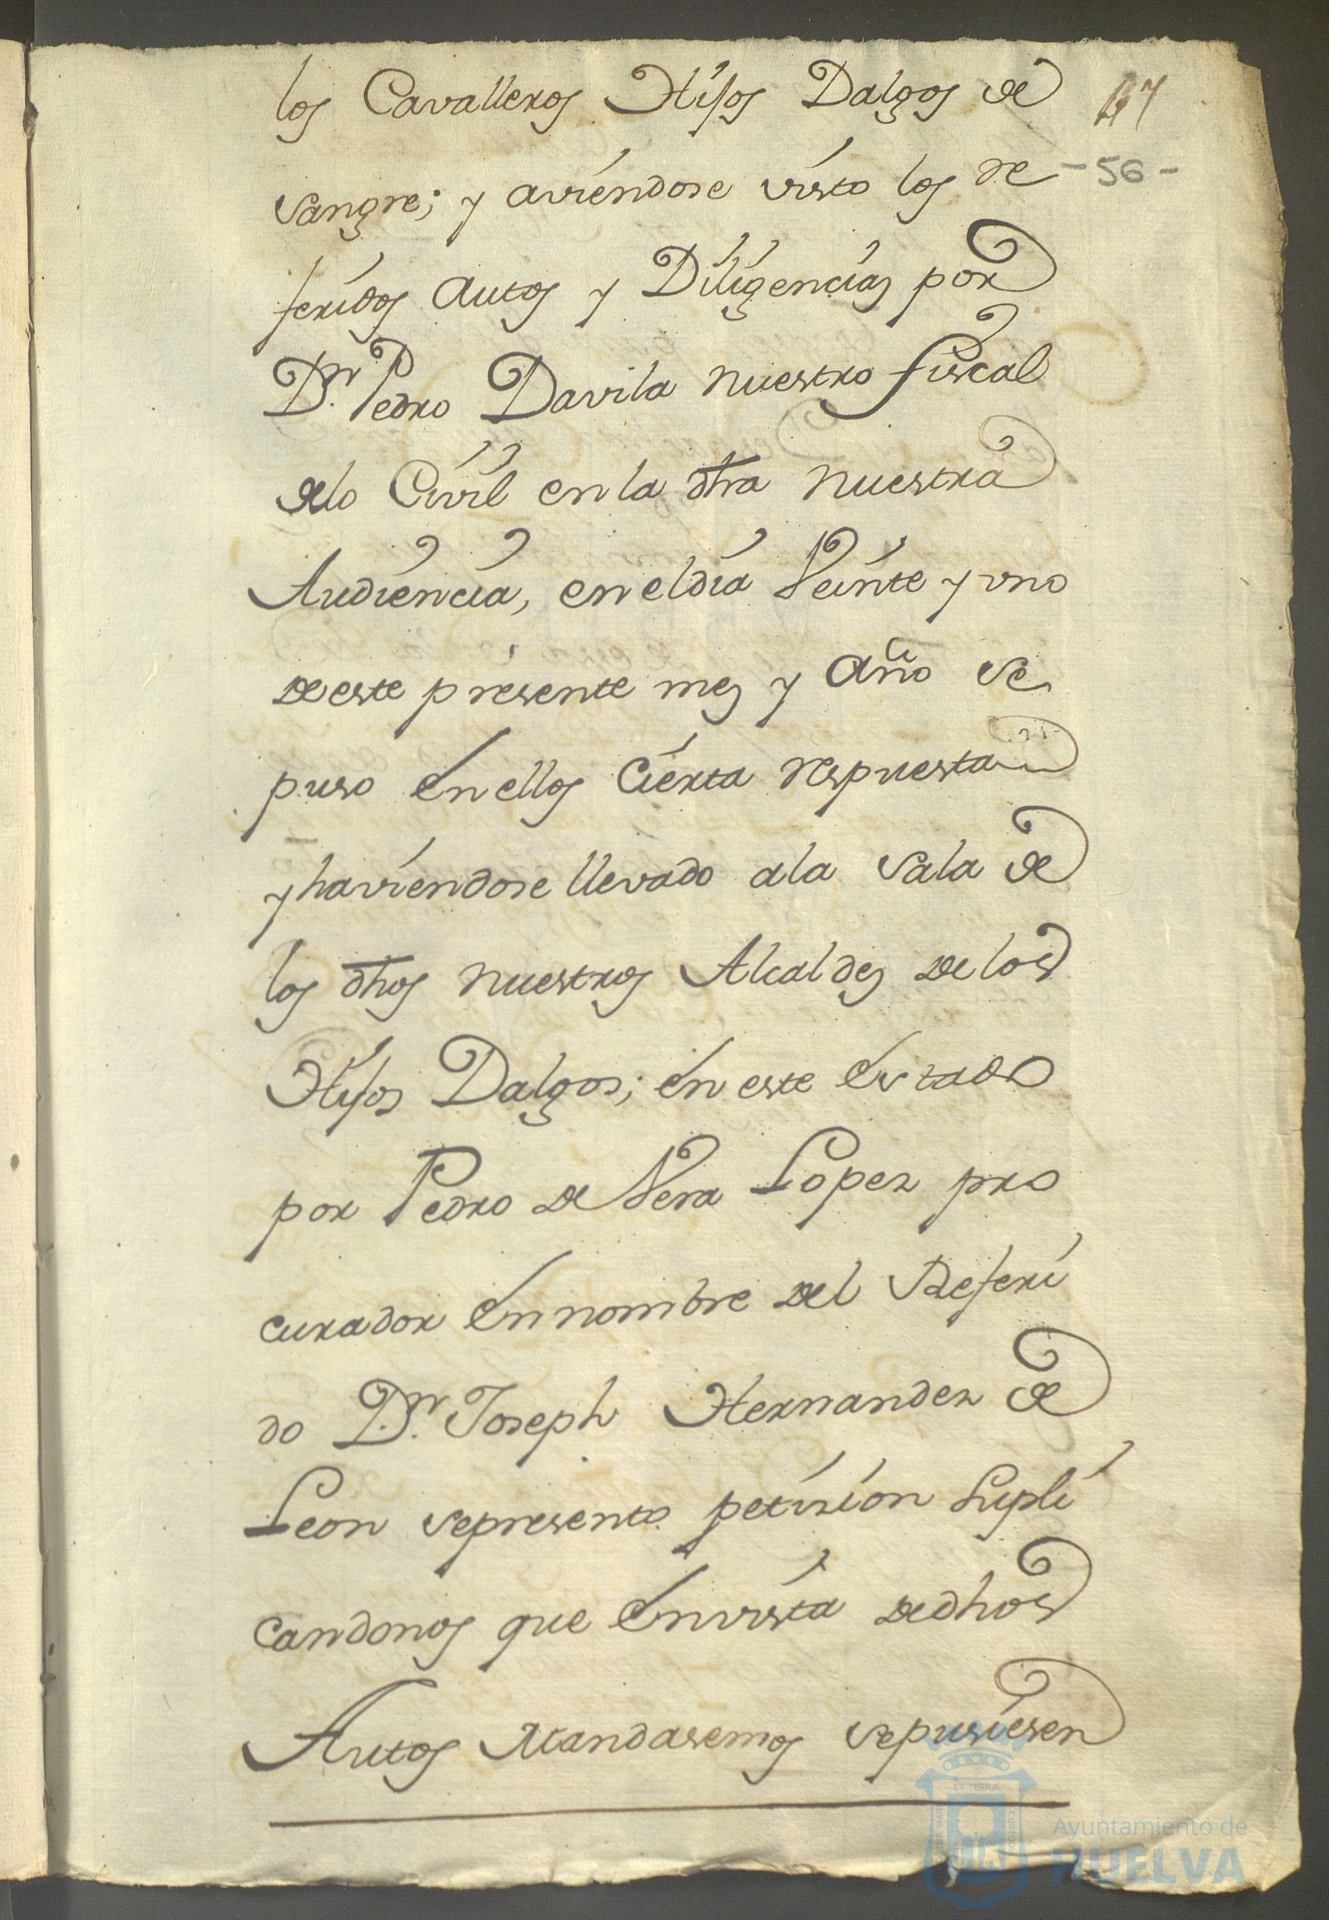 los Cavalleros Hijos Dalgos de
sangre; y aviendose visto los re
feridos autos y Diligencias por
Dn. Pedro Davila nuestro fiscal
delo Civil en la dha nuestra
Audiencia, en el dia Veinte y uno
de este presente mes y año se
puso en ellos cierta respuesta
y haviendose llevado ala sala de
los dhos nuestros Alcaldes de los
Hijos Dalgos; en este estado
por Pedro de Vera Lopez pro
curador en nombre del Referi
do Dn. Joseph Hernandez de
Leon se presento petizion supli
candonos que en vista de dhos
Autos Mandasemos se pusiesen
-56-
Ayuntamiento de
HUELVA